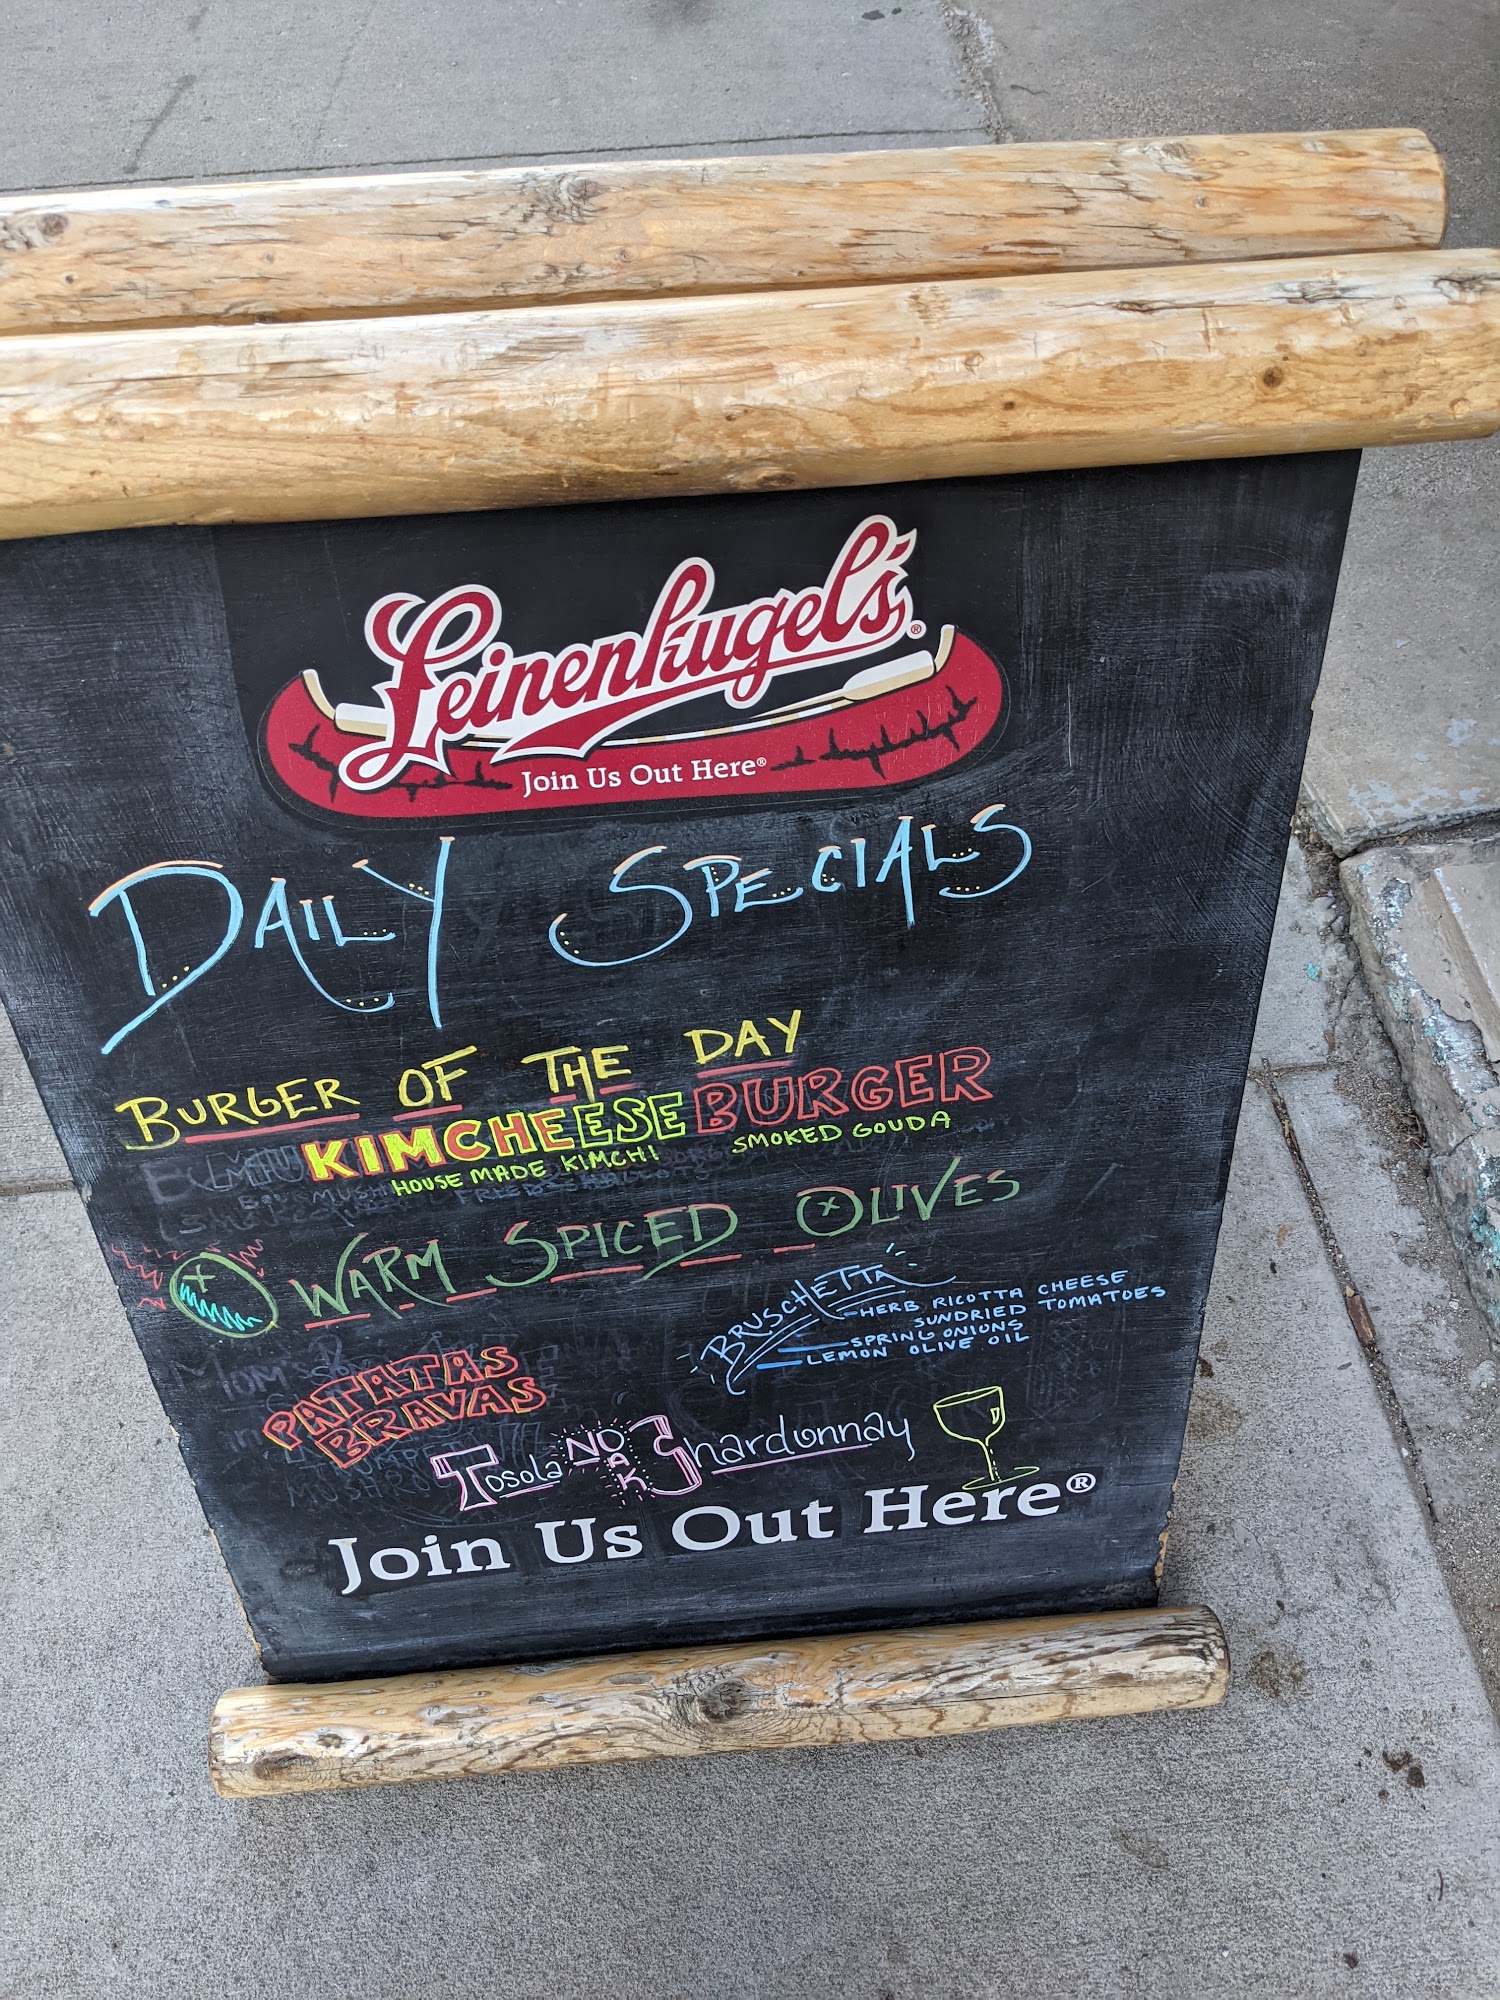 Leinenkugel's®
Join Us Out Here®
DAILY SPECIALS
BURGER OF THE DAY
KIMCHEESE BURGER
HOUSE MADE KIMCHI SMOKED GOUDA
WARM SPICED OLIVES
BRUSCHETTA
HERB RICOTTA CHEESE
SUNDRIED TOMATOES
SPRING ONIONS
LEMON OLIVE OIL
PATATAS
BRAVAS
Tosola NO OAK Chardonnay
Join Us Out Here®